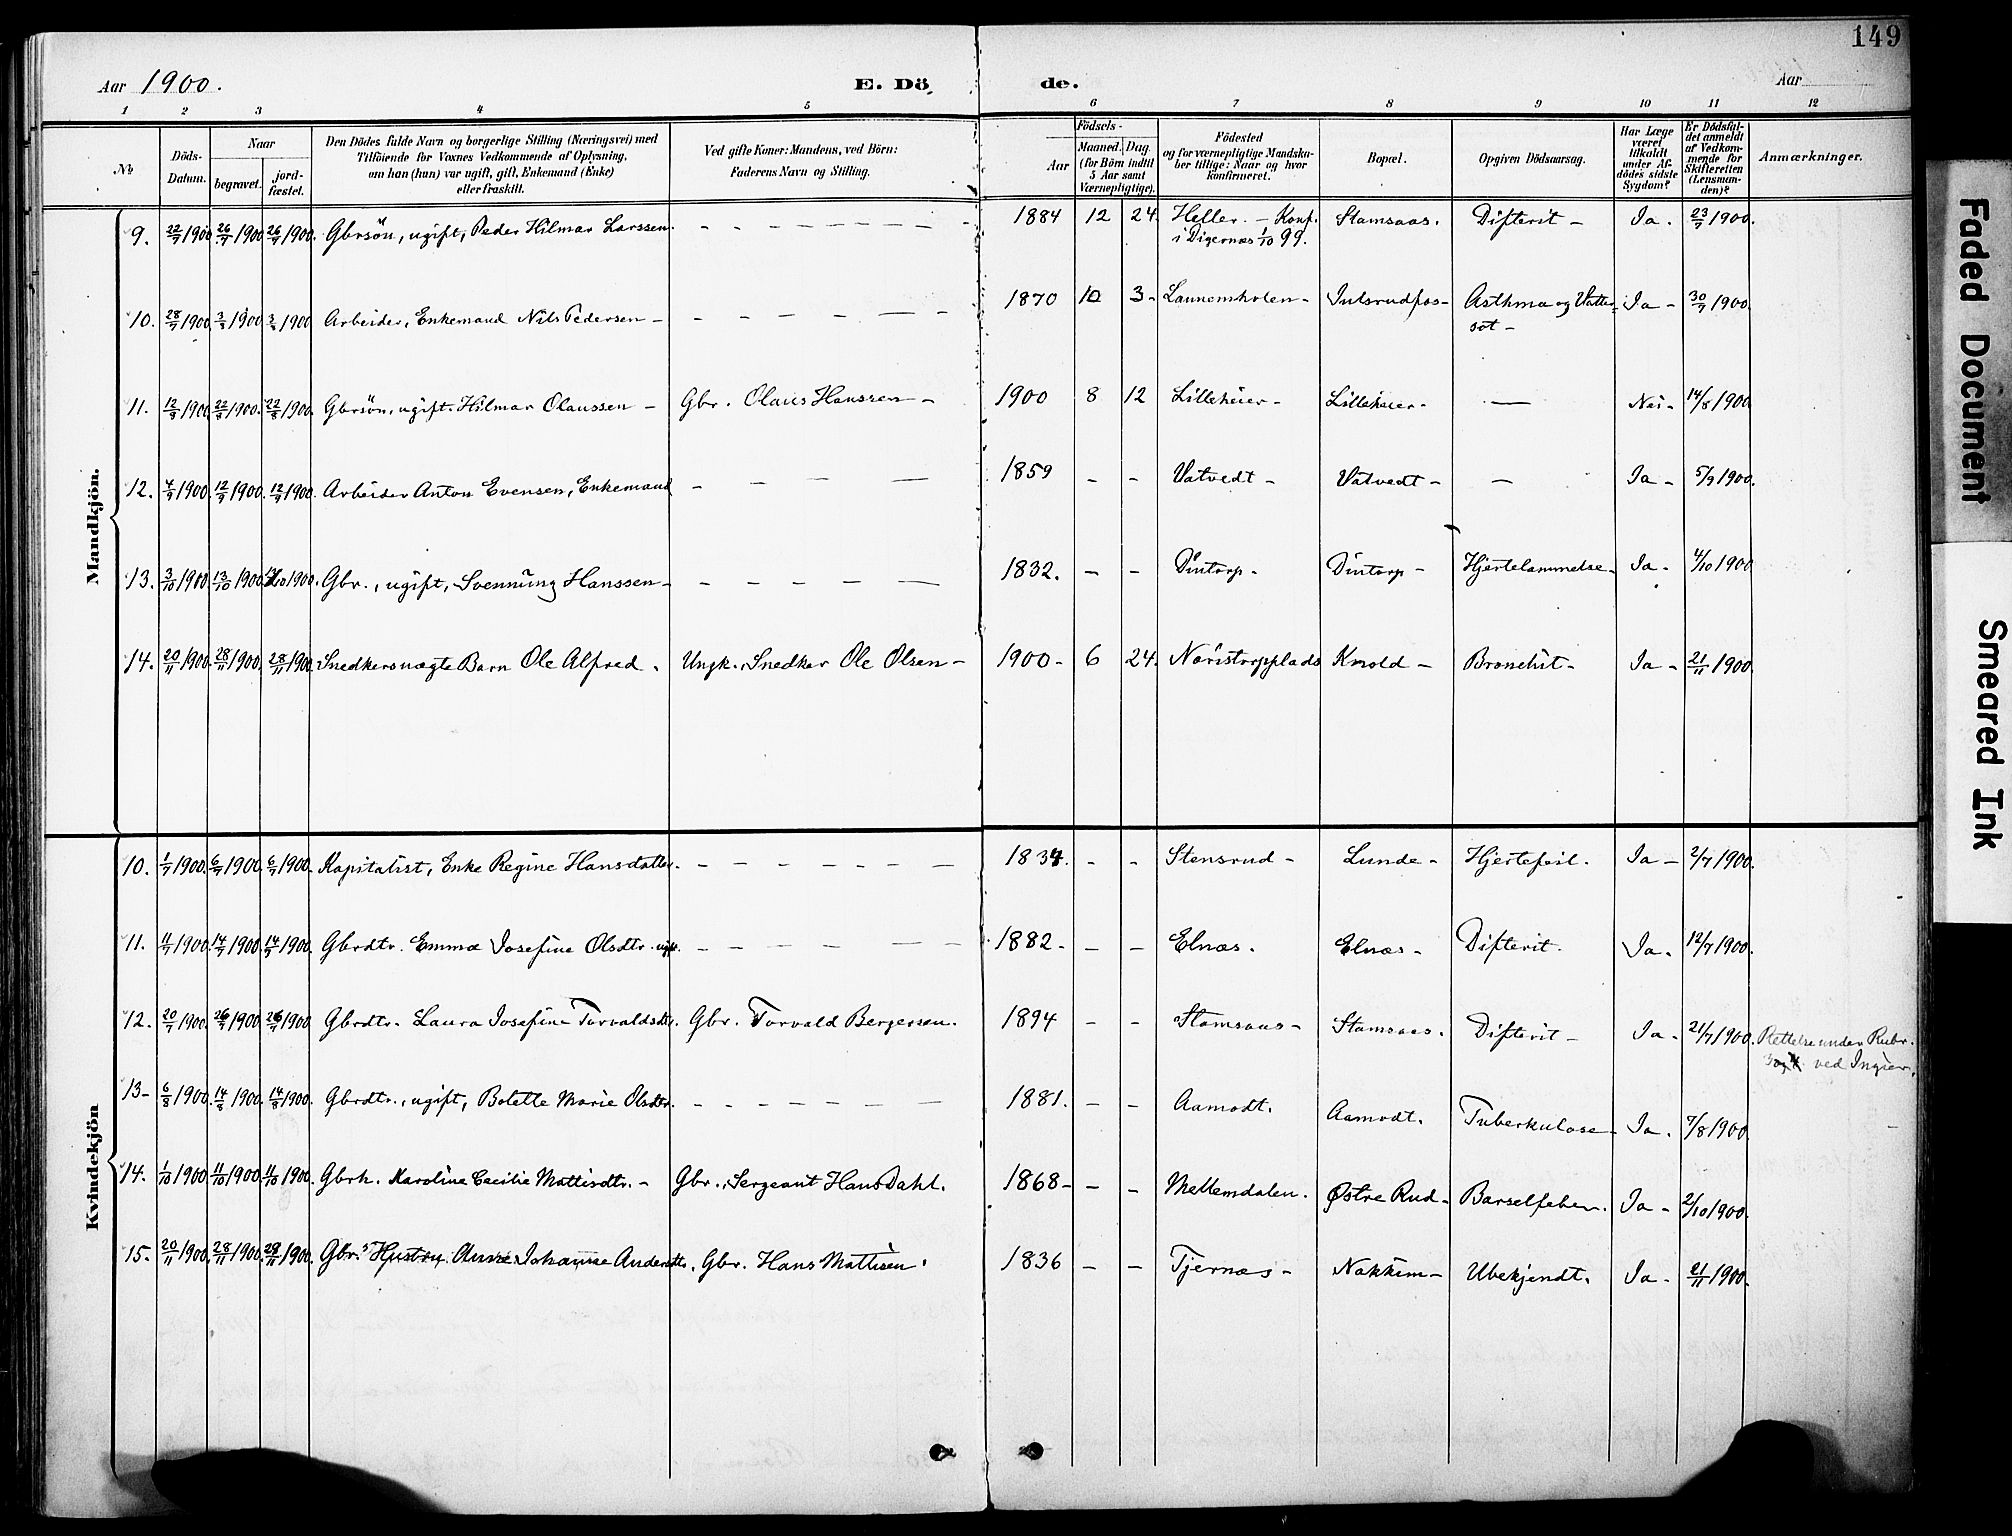 149
Aar 1900. E. Dö de. Aar
1 2 3 4 5 6 7 8 9 10 11 12
No
Döds-Datum.
Naar
begravet.
jord-fæstet.
Den Dödes fulde Navn og borgerlige Stilling (Næringsvei) med
Tilföiende for Voxnes Vedkommende af Oplysning,
om han (hun) var ugift, gift, Enkemand (Enke)
eller fraskilt.
Ved gifte Koner: Mandens, ved Börn:
Faderens Navn og Stilling.
Födsels-
Aar
Maaned. Dag.
(for Börn indtil
5 Aar samt
Værnepligtige).
Födested
og for værnepligtige Mandska-
ber tillige: Naar og hvor
konfirmeret.
Bopæl.
Opgiven Dödsaarsag.
Har Læge
været
tilkaldt
under Af-
dödes sidste
Sygdom?
Er Dödsfal-
det anmeldt
af Vedkom-
mende for
Skifteretten
(Lensman-
den)?
Anmærkninger.
Mandkjön.
9. 22/7 1900 26/7 1900 26/7 1900. Gbrsön, ugift, Peder Hilmar Larssen. - - - - - - 1884 12 24. Heller. - Konf. Stamsaas. Difterit - Ja. 23/7 1900.
i Digernæs 1/10 99.
10. 28/7 1900. 3/8 1900 3/8 1900 Arbeider, Enkemand Nils Pedersen - - - - - - 1870 10 3 - Lannemholen - Julsrudfos - Asthma og Vatter= Ja - 30/7 1900.
sot -
11. 12/8 1900 22/8 1900. 22/8 1900. Gbrsön, ugift. Hilmar Olaussen - Gbr. Olaus Hanssen - 1900 8 12 Lilleheier - Lilleheier - — Nei - 14/8 1900
12. 4/9 1900 12/9 1900. 12/9 1900. Arbeider Anton Evensen, Enkemand - - - - 1859 - - Vatvedt - Vatvedt - - Ja - 5/9 1900.
13. 3/10 1900 13/10 1900. 13/10 1900. Gbr., ugift, Svennung Hanssen - - - - - - 1832. - - Dintorp - Dintorp - Hjertelammelse - Ja - 4/10 1900
14. 20/11 1900. 28/11 1900. 28/11 1900 Snedkers uægte Barn Ole Alfred. Ungk., Snedker Ole Olsen - 1900 - 6 24. Noristorpplads Knold - Bronchit - Ja - 21/11 1900.
Kvindekjön
10. 1/7 1900. 6/7 1900. 6/7 1900. Kapitalist, Enke Regine Hansdatter. - - - - - - 1834. - - Stensrud - Lunde - Hjertefeil. Ja - 2/7 1900.
11. 11/7 1900. 14/7 1900 14/7 1900. Gbrdtr. Emma Josefine Olsdtr. ugift. - - - - - - 1882 - - - Elnæs. Elnæs - Difterit. Ja. 12/7 1900.
12. 20/7 1900. 26/7 1900 26/7 1900 Gbrdtr. Laura Josefine Torvaldsdtr. Gbr. Torvald Bergersen. 1894 - - Stamsaas - Stamsaas. Difterit - Ja. 21/7 1900. Rettelse under Rubr.
3 ved Ingier.
13 - 6/8 1900. 14/8 1900. 14/8 1900. Gbrdtr., ugift, Bolette Marie Olsdtr. - - - - - - 1881. - - Aamodt. Aamodt. Tuberkulose - Ja. 7/8 1900.
14. 1/10 1900 11/10 1900 11/10 1900. Gbrk. Karoline Cecilie Mattisdtr. - Gbr., Sergeant Hans Dahl. 1868 - - - Mellemdalen. Østre Rud - Barselfeber. Ja - 2/10 1900.
15. 20/11 1900. 28/11 1900. 28/11 1900. Gbr.s Hustru Anne Johanne Andersdtr. Gbr. Hans Mattisen. 1836 - - Tjernæs - Nakkim - Ubekjendt. Ja - 21/11 1900.
Faded Document
Smeared Ink